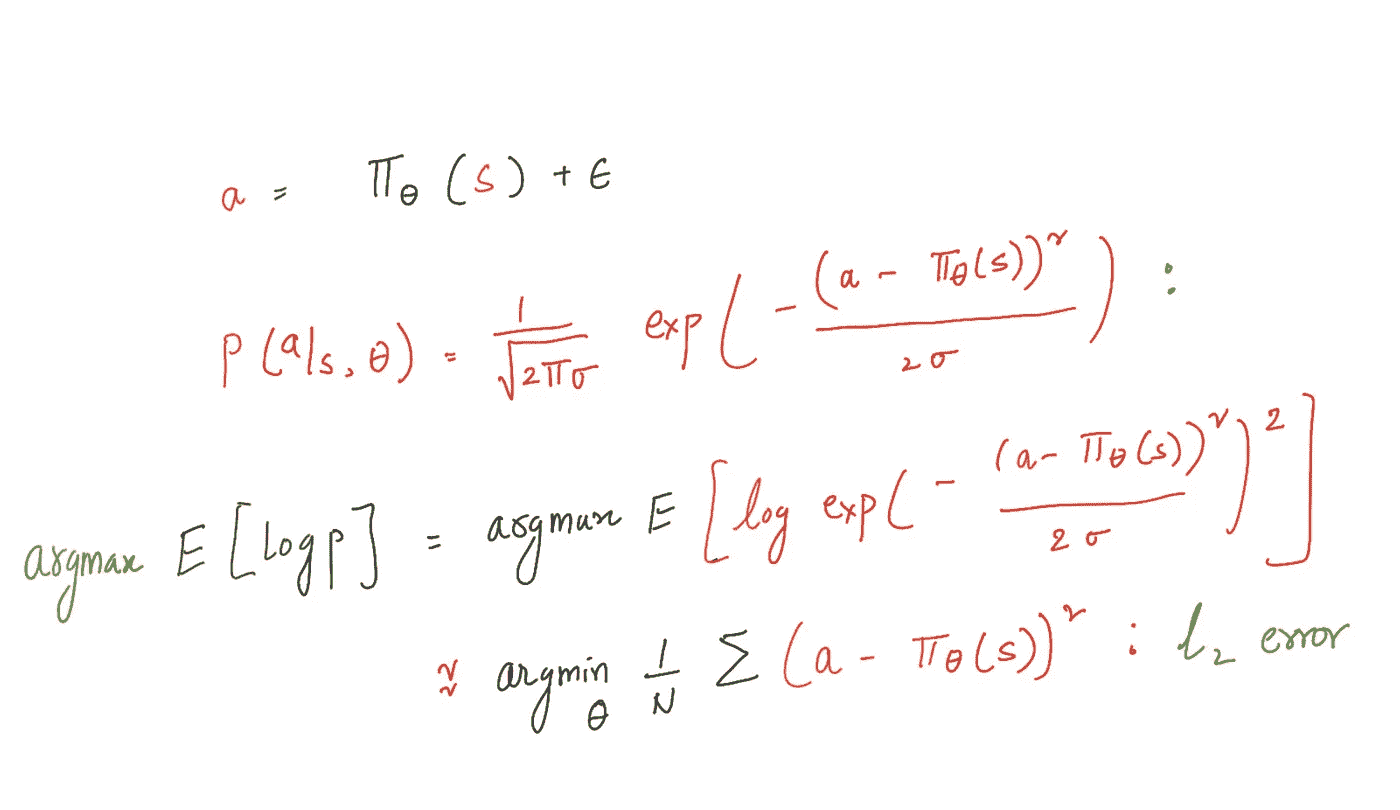 a = π_θ (s) + ϵ
p (a|s, θ) = 1/√(2πσ) exp( - (a - π_θ(s))² / 2σ ) :
argmax E [log p] = argmax E [ log exp( - (a - π_θ(s))² / 2σ )² ]
≈ argmin_θ 1/N Σ (a - π_θ(s))² : l₂ error